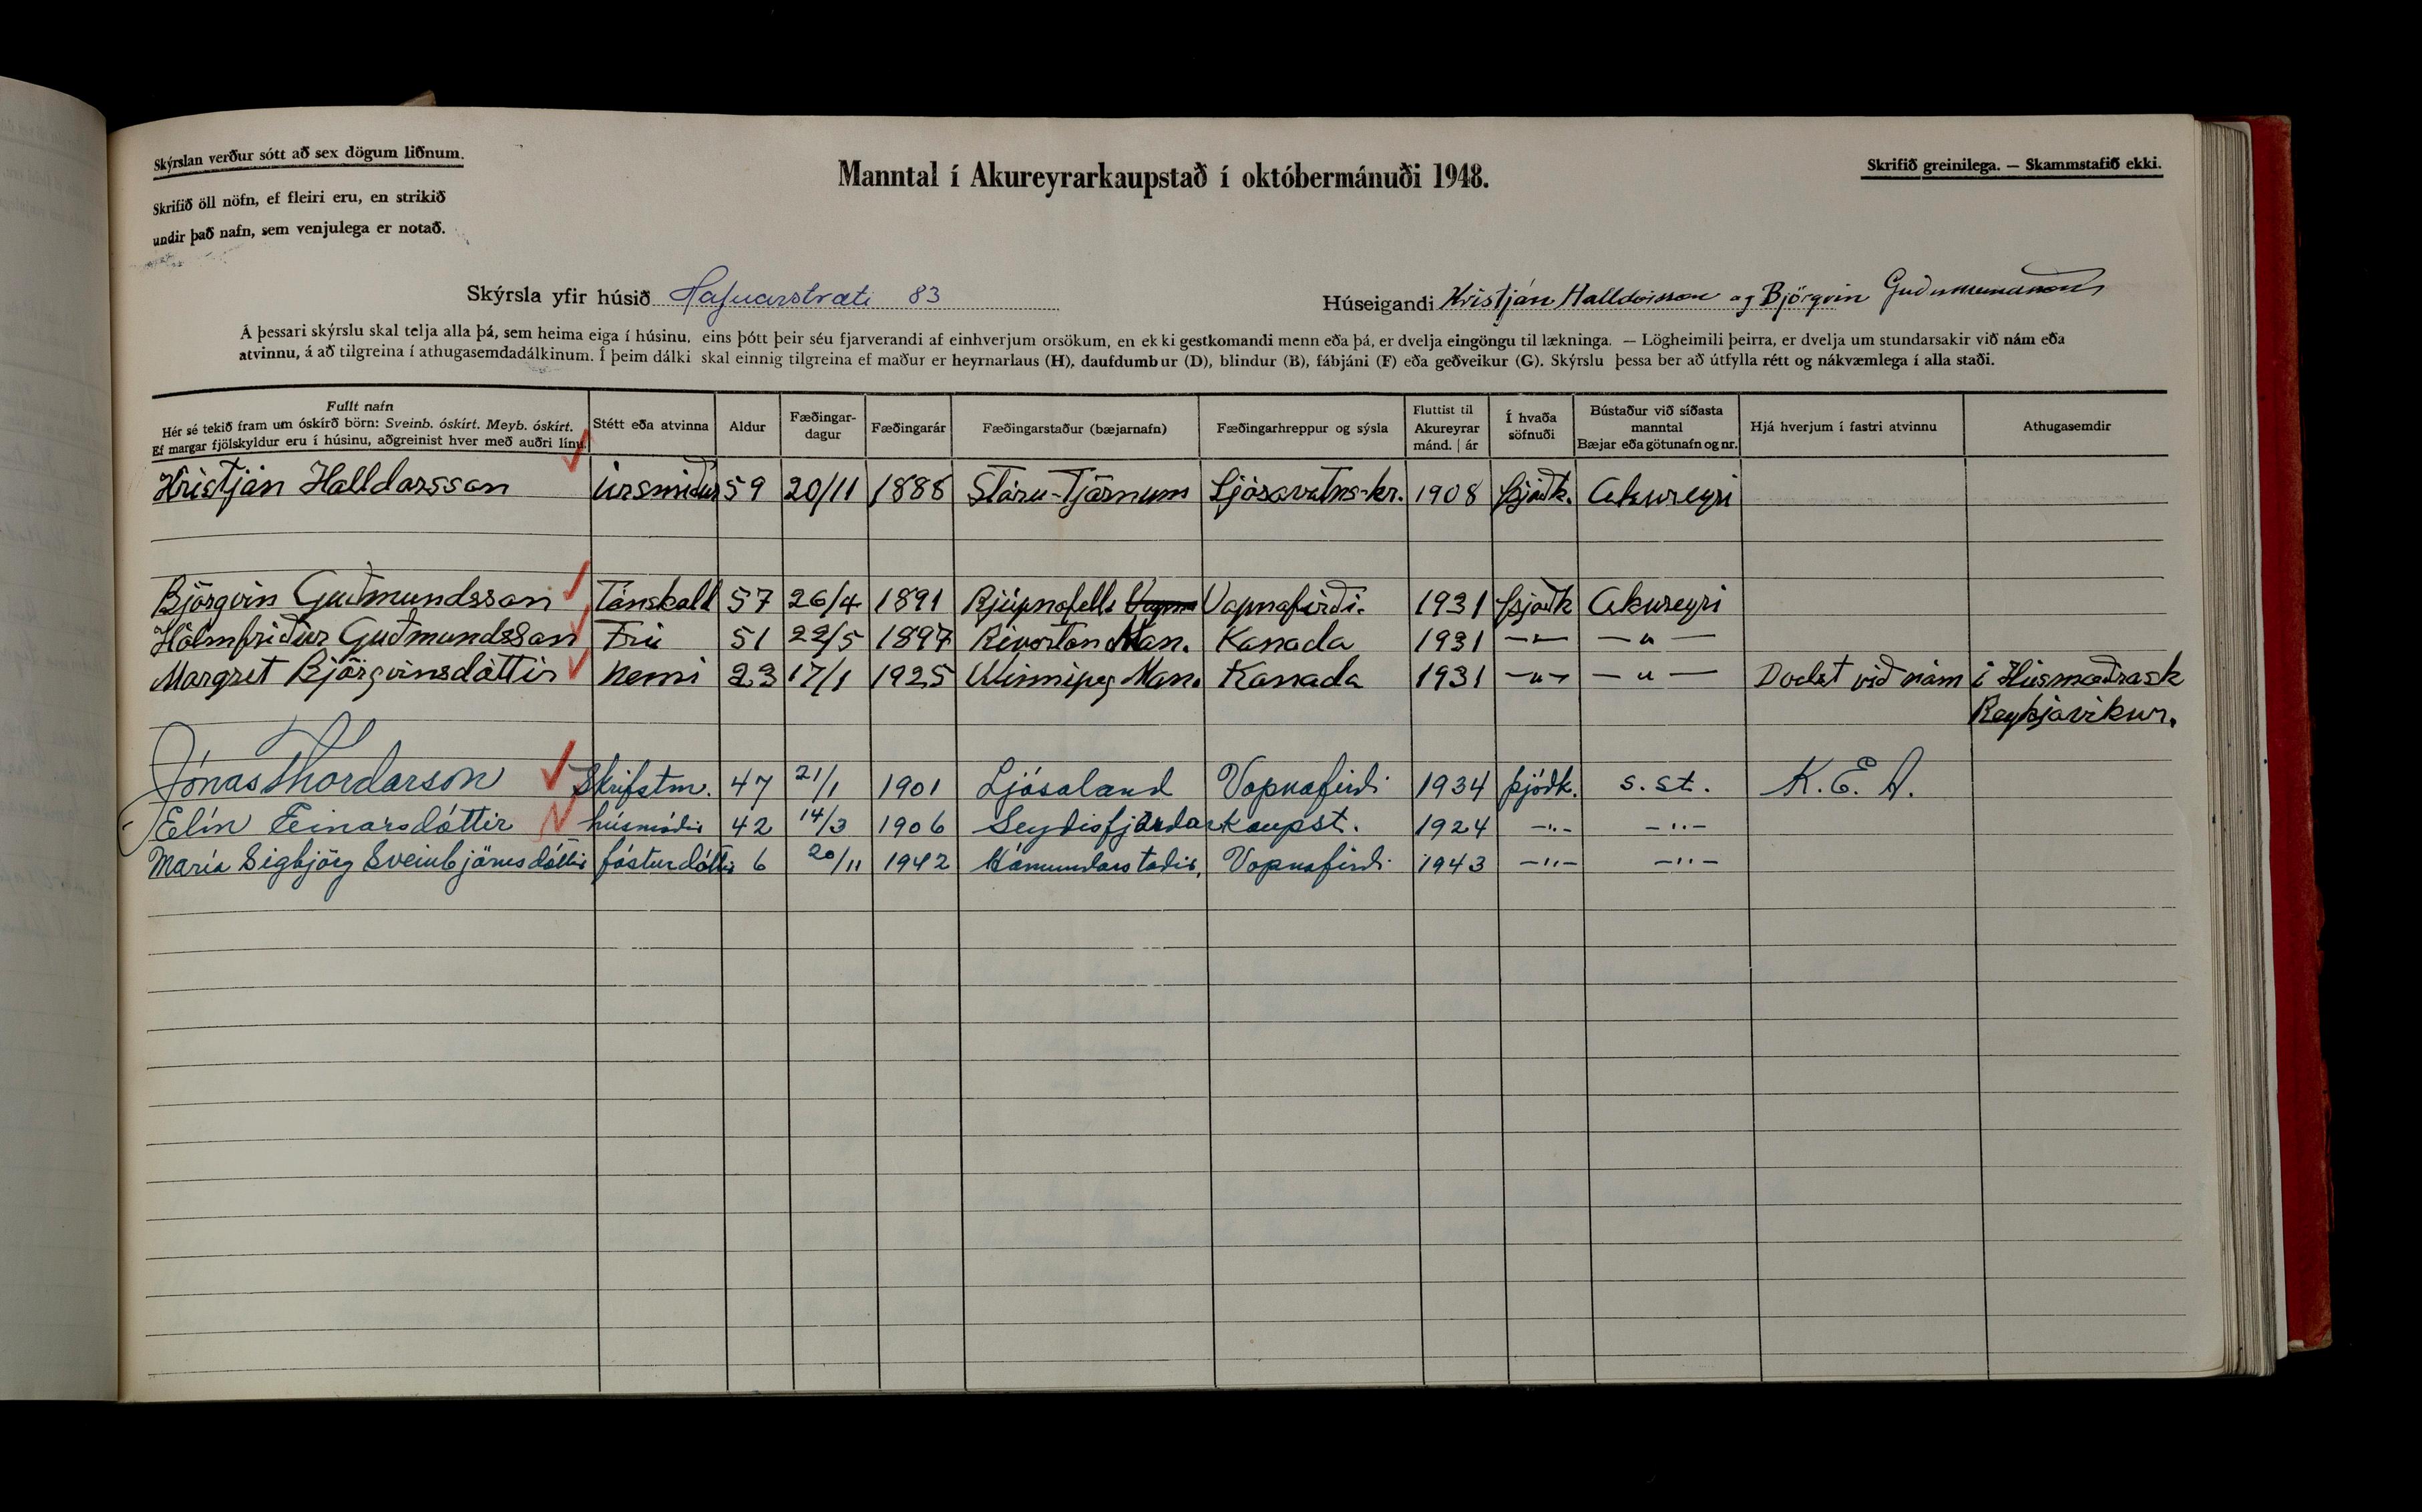 Skýrslan verður sótt að sex dögum liðnum.
Skrifið öll nöfn, ef fleiri eru, en strikið
undir það nafn, sem venjulega er notað.
Manntal í Akureyrarkaupstað í októbermánuði 1948.
Skrifið greinilega. — Skammstafið ekki.
Skýrsla yfir húsið Hafnarstræti 83
Húseigandi Kristján Halldórsson og Björgvin Guðmundsson
Á þessari skýrslu skal telja alla þá, sem heima eiga í húsinu, eins þótt þeir séu fjarverandi af einhverjum orsökum, en ekki gestkomandi menn eða þá, er dvelja eingöngu til lækninga. — Lögheimili þeirra, er dvelja um stundarsakir við nám eða
atvinnu, á að tilgreina í athugasemdadálkinum. Í þeim dálki skal einnig tilgreina ef maður er heyrnarlaus (H), daufdumbur (D), blindur (B), fábjáni (F) eða geðveikur (G). Skýrslu þessa ber að útfylla rétt og nákvæmlega í alla staði.
Fullt nafn
Hér sé tekið fram um óskírð börn: Sveinb. óskírt. Meyb. óskírt.
Ef margar fjölskyldur eru í húsinu, aðgreinist hver með auðri línu.
Stétt eða atvinna
Aldur
Fæðingar-
dagur
Fæðingarár
Fæðingarstaður (bæjarnafn)
Fæðingarhreppur og sýsla
Fluttist til
Akureyrar
mánd. | ár
Í hvaða
söfnuði
Bústaður við síðasta
manntal
Bæjar eða götunafn og nr.
Hjá hverjum í fastri atvinnu
Athugasemdir
Kristján Halldorsson Úrsmiður 59 20/11 1888 Stóru-Tjörnum Ljósavatns-hr. 1908 Þjóðk. Akureyri
Björgvin Guðmundsson Tónskáld 57 26/4 1891 Rjúpnafelli Vopnafirði. 1931 Þjóðk Akureyri
Hólmfriður Guðmundsson Frú 51 22/5 1897 Riverton Man. Kanada 1931 —"— —"—
Margret Björgvinsdóttir Nemi 23 17/1 1925 Winnipeg Man. Kanada 1931 —"— —"— Dvelst við nám í Húsmæðrask
Reykjavikur.
Jónas Thordarson Skrifstm. 47 21/1 1901 Ljósaland Vopnafirdi 1934 þjódk. s. st. K. E. A.
Elín Einarsdóttir húsmódir 42 14/3 1906 Seydisfjardarkaupst. 1924 —"— —"—
María Sigbjörg Sveinbjörnsdóttir fósturdóttir 6 20/11 1942 Hámundarstadir, Vopnafirdi 1943 —"— —"—